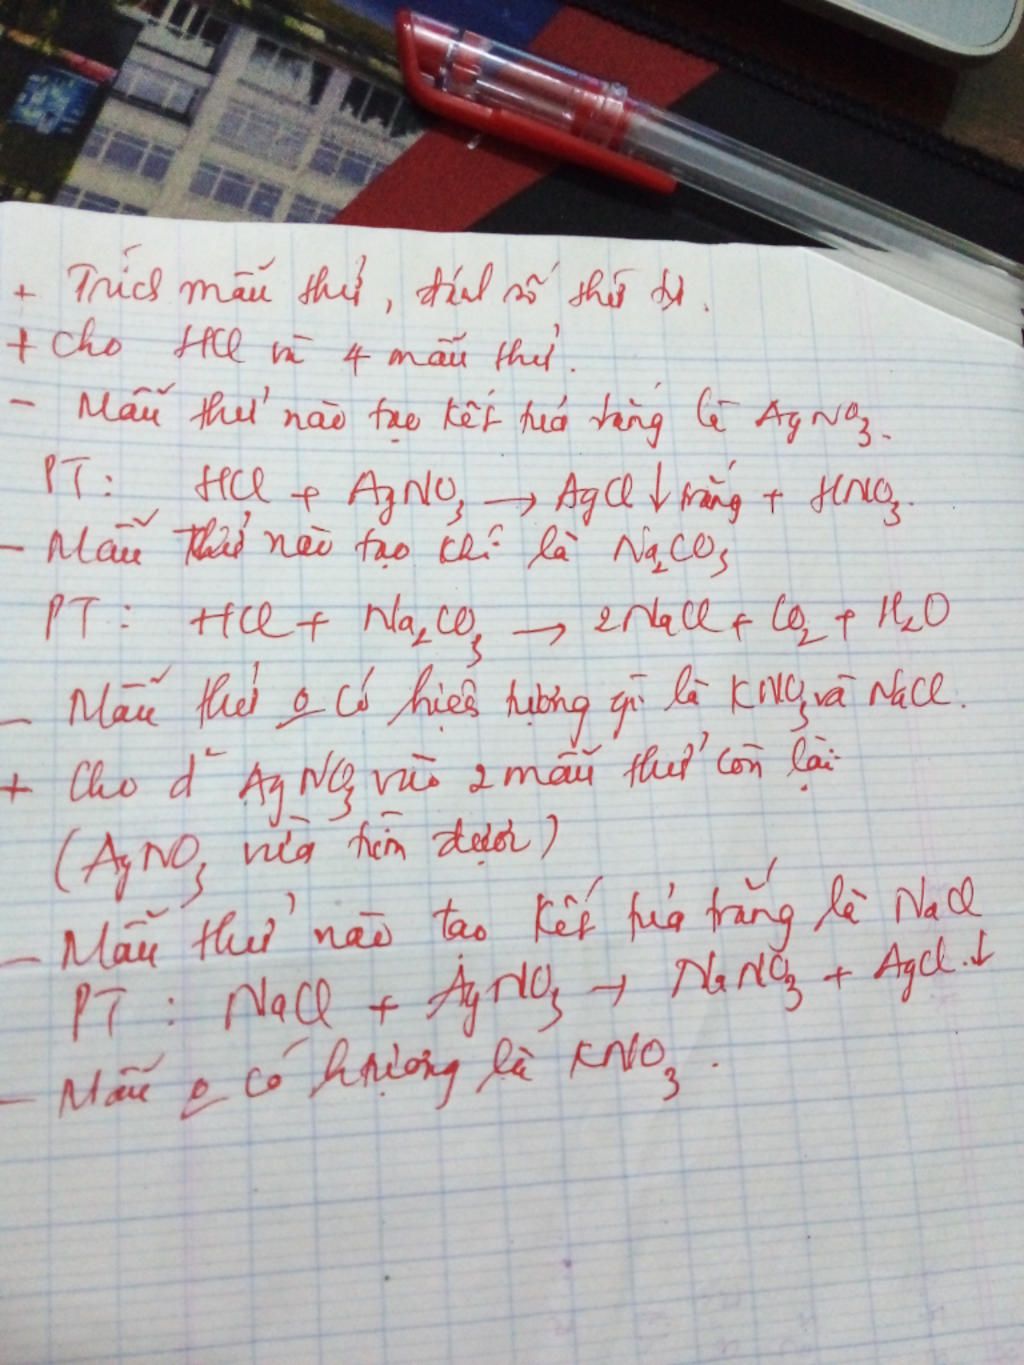 + Trích mẫu thử, đánh số thứ tự.
+ Cho HCl và 4 mẫu thử.
- Mẫu thử nào tạo kết tủa trắng là AgNO3.
PT: HCl + AgNO3 → AgCl↓ trắng + HNO3.
- Mẫu thử nào tạo khí là Na2CO3
PT: HCl + Na2CO3 → 2NaCl + CO2 + H2O
- Mẫu thử o có hiện tượng gì là KNO3 và NaCl.
+ Cho d² AgNO3 vào 2 mẫu thử còn lại
(AgNO3 vừa tìm được)
- Mẫu thử nào tạo kết tủa trắng là NaCl
PT: NaCl + AgNO3 → NaNO3 + AgCl.↓
- Mẫu o có htượng là KNO3.